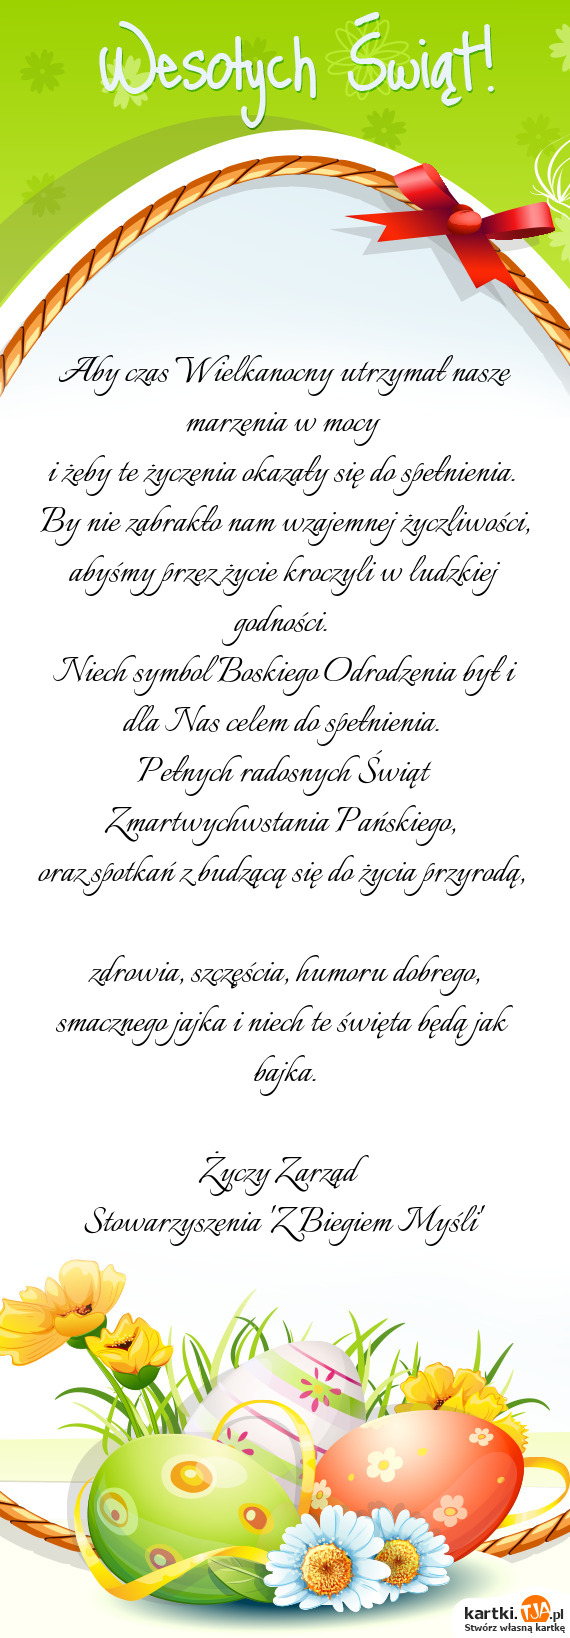 Wesołych Świąt!
Aby czas Wielkanocny utrzymał nasze
marzenia w mocy
i żeby te życzenia okazały się do spełnienia.
By nie zabrakło nam wzajemnej życzliwości,
abyśmy przez życie kroczyli w ludzkiej
godności.
Niech symbol Boskiego Odrodzenia był i
dla Nas celem do spełnienia.
Pełnych radosnych Świąt
Zmartwychwstania Pańskiego,
oraz spotkań z budzącą się do życia przyrodą,
zdrowia, szczęścia, humoru dobrego,
smacznego jajka i niech te święta będą jak
bajka.
Życzy Zarząd
Stowarzyszenia 'Z Biegiem Myśli'
kartki.TJA.pl
Stwórz własną kartkę